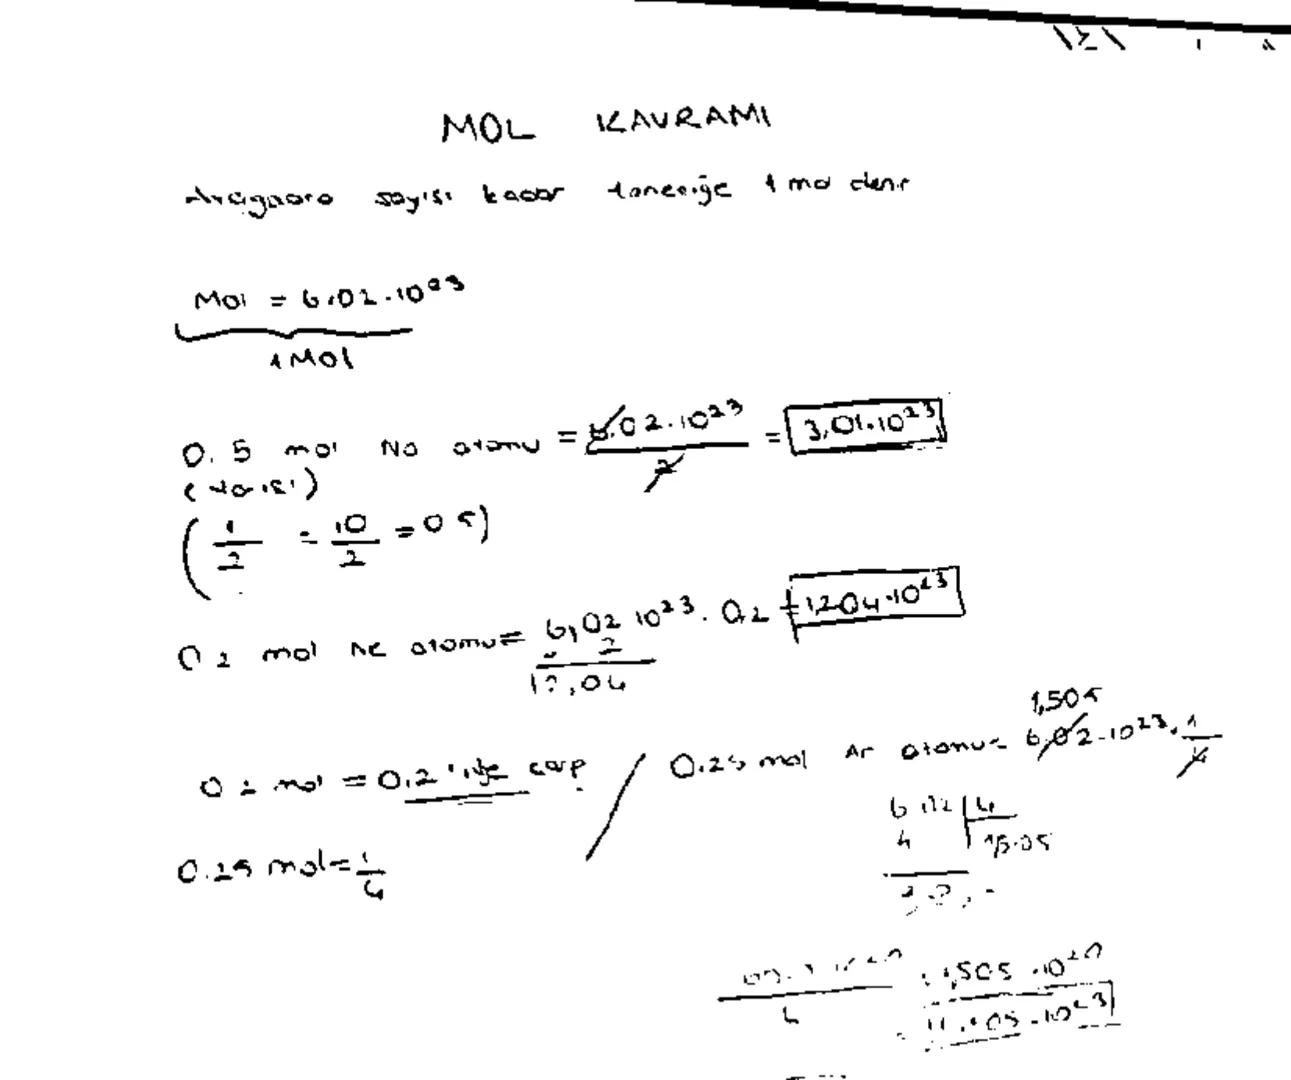 MOL KAVRAMI
Avagadro sayısı kadar taneciğe 1 mol denir
Mol = 6,02.10²³
1 Mol
0.5 mol Na atomu = 6,02.10²³ / 2 = 3,01.10²³
(yarısı)
(1/2 = 10/2 = 0 5)
0 2 mol Ne atomu = 6,02 10²³. 0,2 = 1,204.10²³
2
12,04
1,505
0 2 mol = 0,2 'ile çarp / 0.25 mol Ar atomu = 6,02.10²³. 1/4
6 02 | 4
4
0.25 mol = 1/4
4
1,505 .10²³